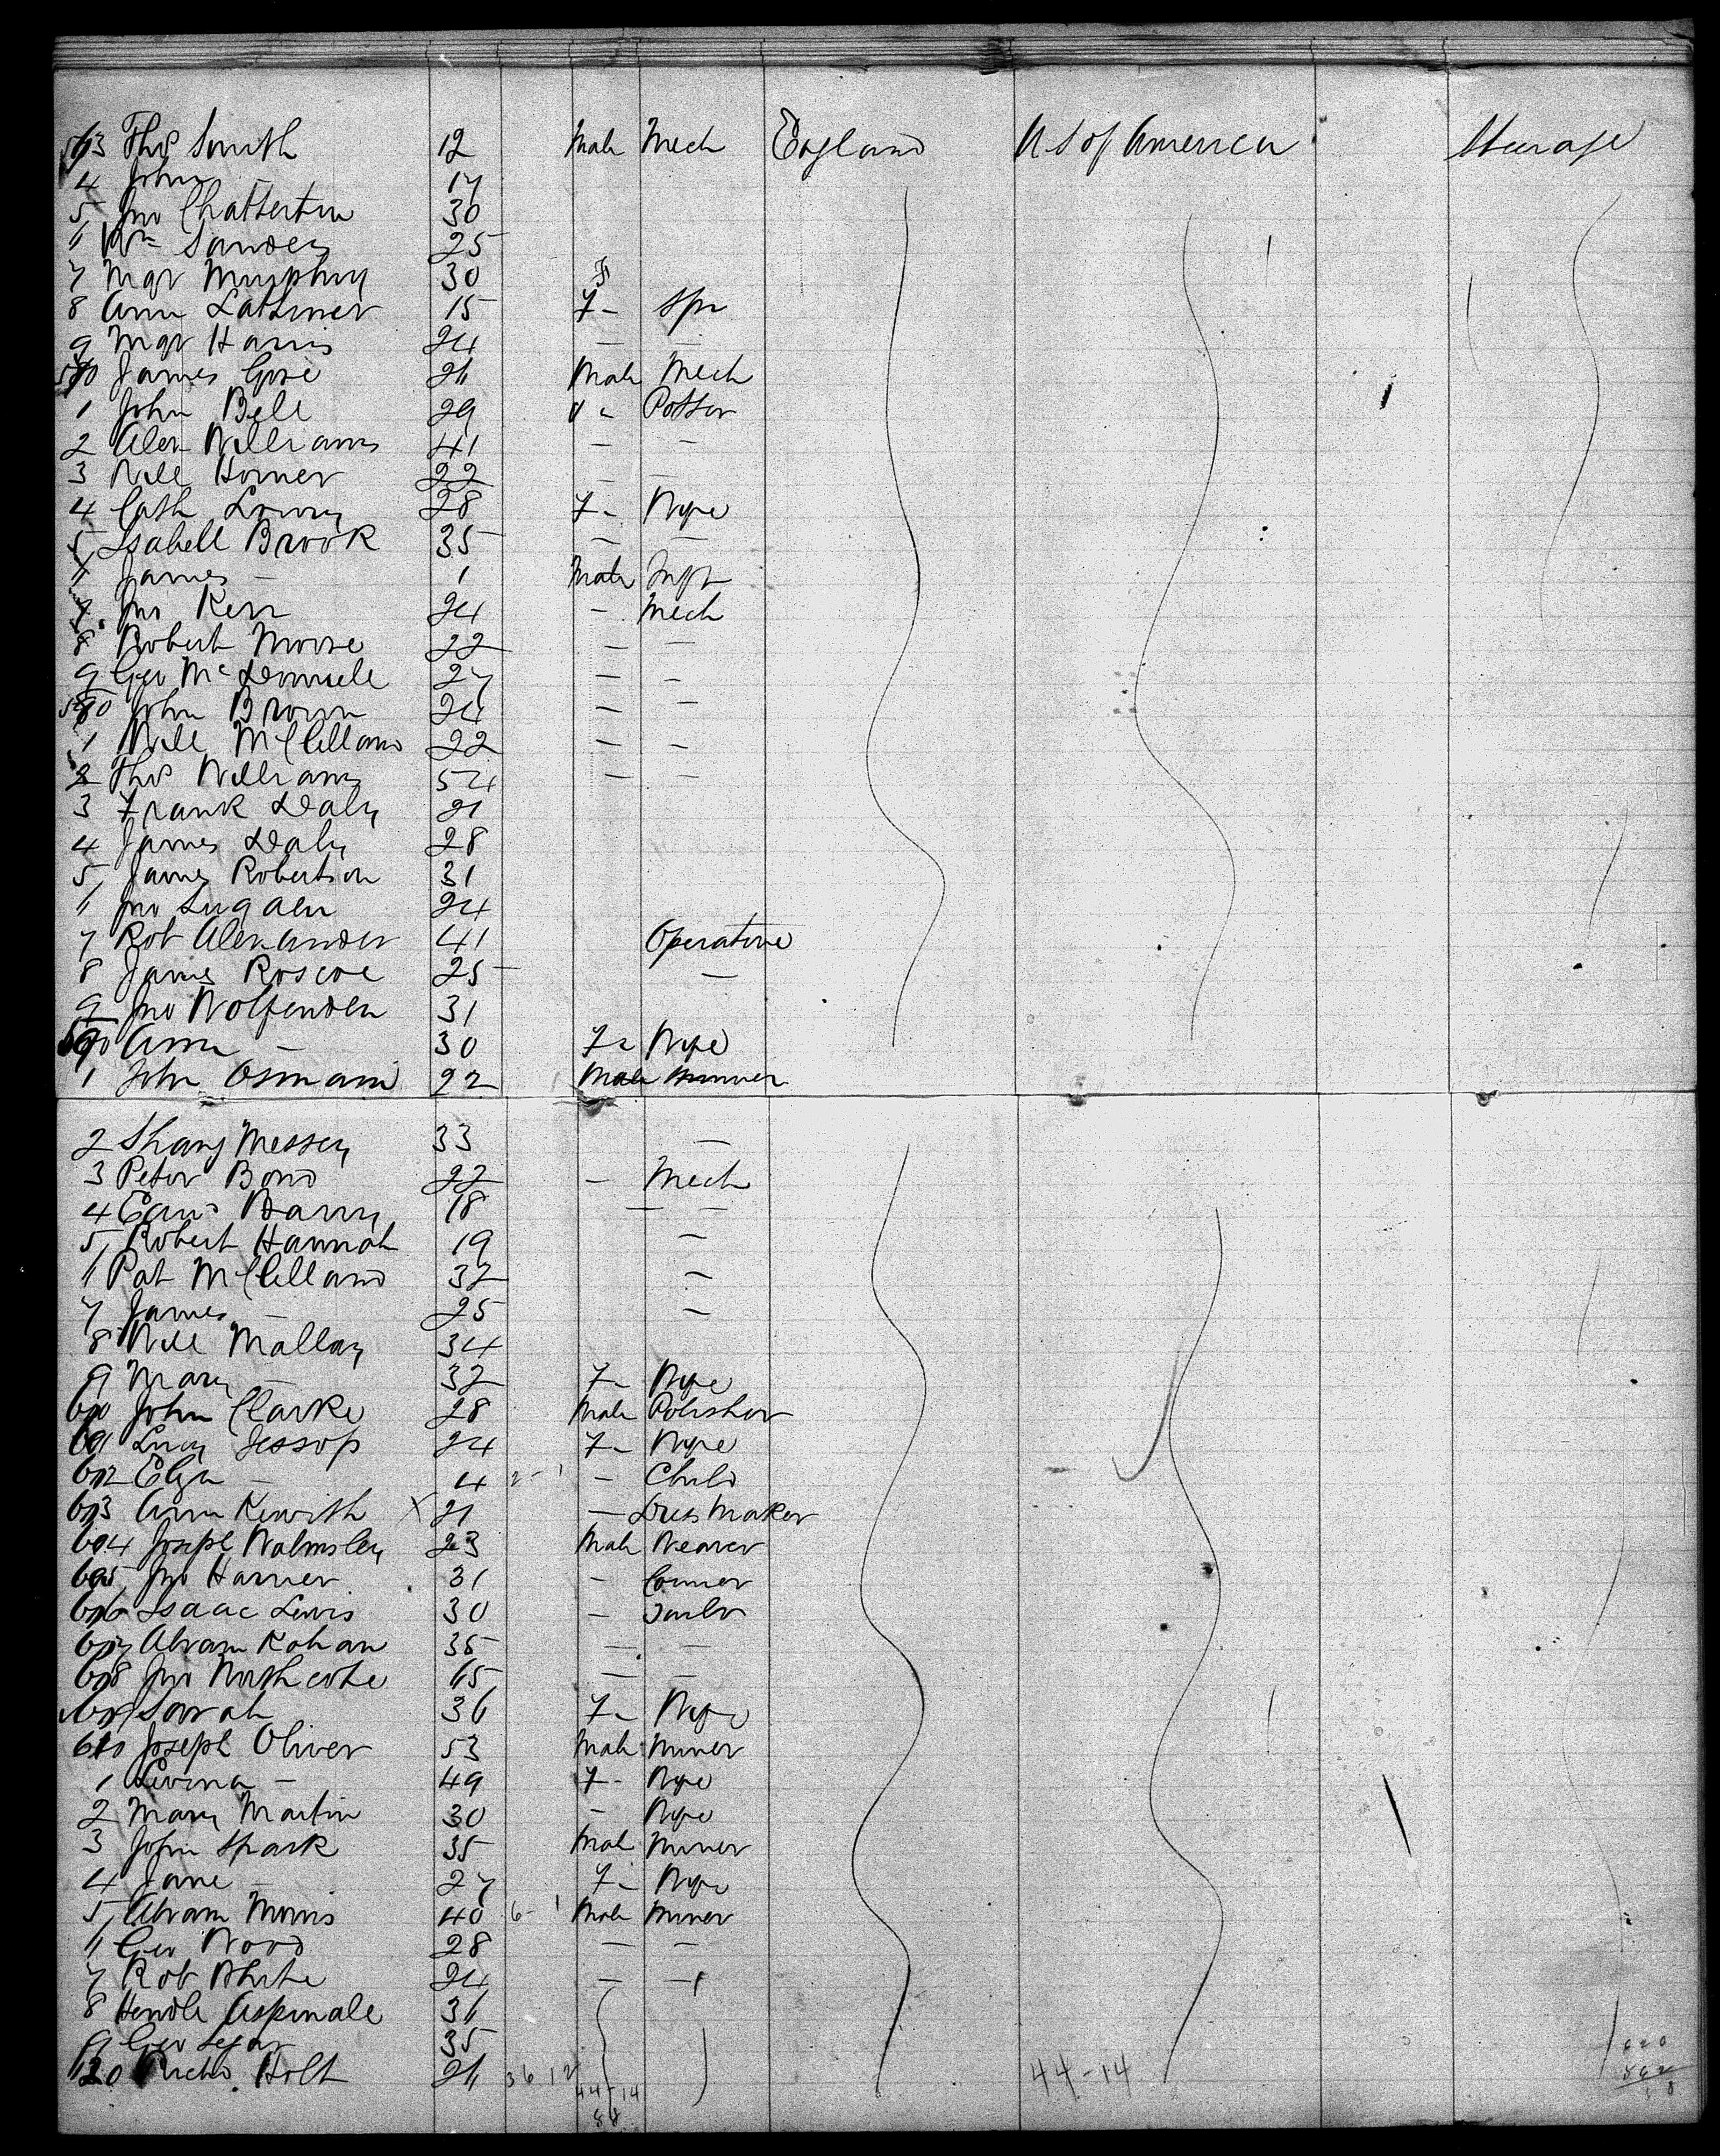 563 Thos Smith 12 Male Mech England U S of America Steerage
4 John - 17
5 Jno Chatterton 30
" Wm Sanders 25
7 Mgr Murphy 30 F
8 Ann Latimer 15 F- Spr
9 Mgr Harris 24 - -
570 James Gore 26 Male Mech
1 John Bell 29 " - Potter
2 Alex Williams 41 - -
3 Will Horner 22 - -
4 Cath Lowry 28 F- Wife
5 Isabell Brook 35 - -
" James - 1 Male Inft
7 Jno Kerr 24 - Mech
8 Robert Moore 22 - -
9 Geo McDonnell 27 - -
580 John Brown 24 - -
1 Will McClelland 22 - -
2 Thos Williams 54 - -
3 Frank Daly 21
4 James Daly 28
5 James Robertson 31
" Jno 24
7 Robt Alexander 41 Operative
8 James Roscoe 25 -
9 Jno Wolfenden 31
590 Ann - 30 F- Wife
1 John Osmand 22 Male Miner
2 Messer 33 -
3 Peter Bond 22 - Mech
4 Barry 18 - -
5 Robert Hannah 19 -
" Pat McClelland 32 -
7 James - 25 -
8 Will Mallay 34
9 Mary - 32 F- Wife
600 John Clarke 28 Male Polisher
601 Lucy Jessop 24 F- Wife
602 Eliza - 4 2-1 - Child
603 Ann Kewish X 21 - Dress Maker
604 Joseph Walmsley 23 Male Weaver
605 Jno Harner 31 -
606 Isaac Lewis 30 - Tailor
607 Abram Kohan 35 - -
608 Jno Northcote 65 - -
609 Sarah 36 F- Wife
610 Joseph Oliver 53 Male Miner
1 Levina - 49 F- Wife
2 Mary Martin 30 - Wife
3 John Spark 35 Male Miner
4 Jane - 27 F- Wife
5 Abram Morris 40 6-1 Male Miner
" Geo Wood 28 - -
7 Robt White 24 - -
8 Aspinall 36
9 Geo 35
620 Richd Holt 26 36 12 44-14 44-14 620
88 562
58